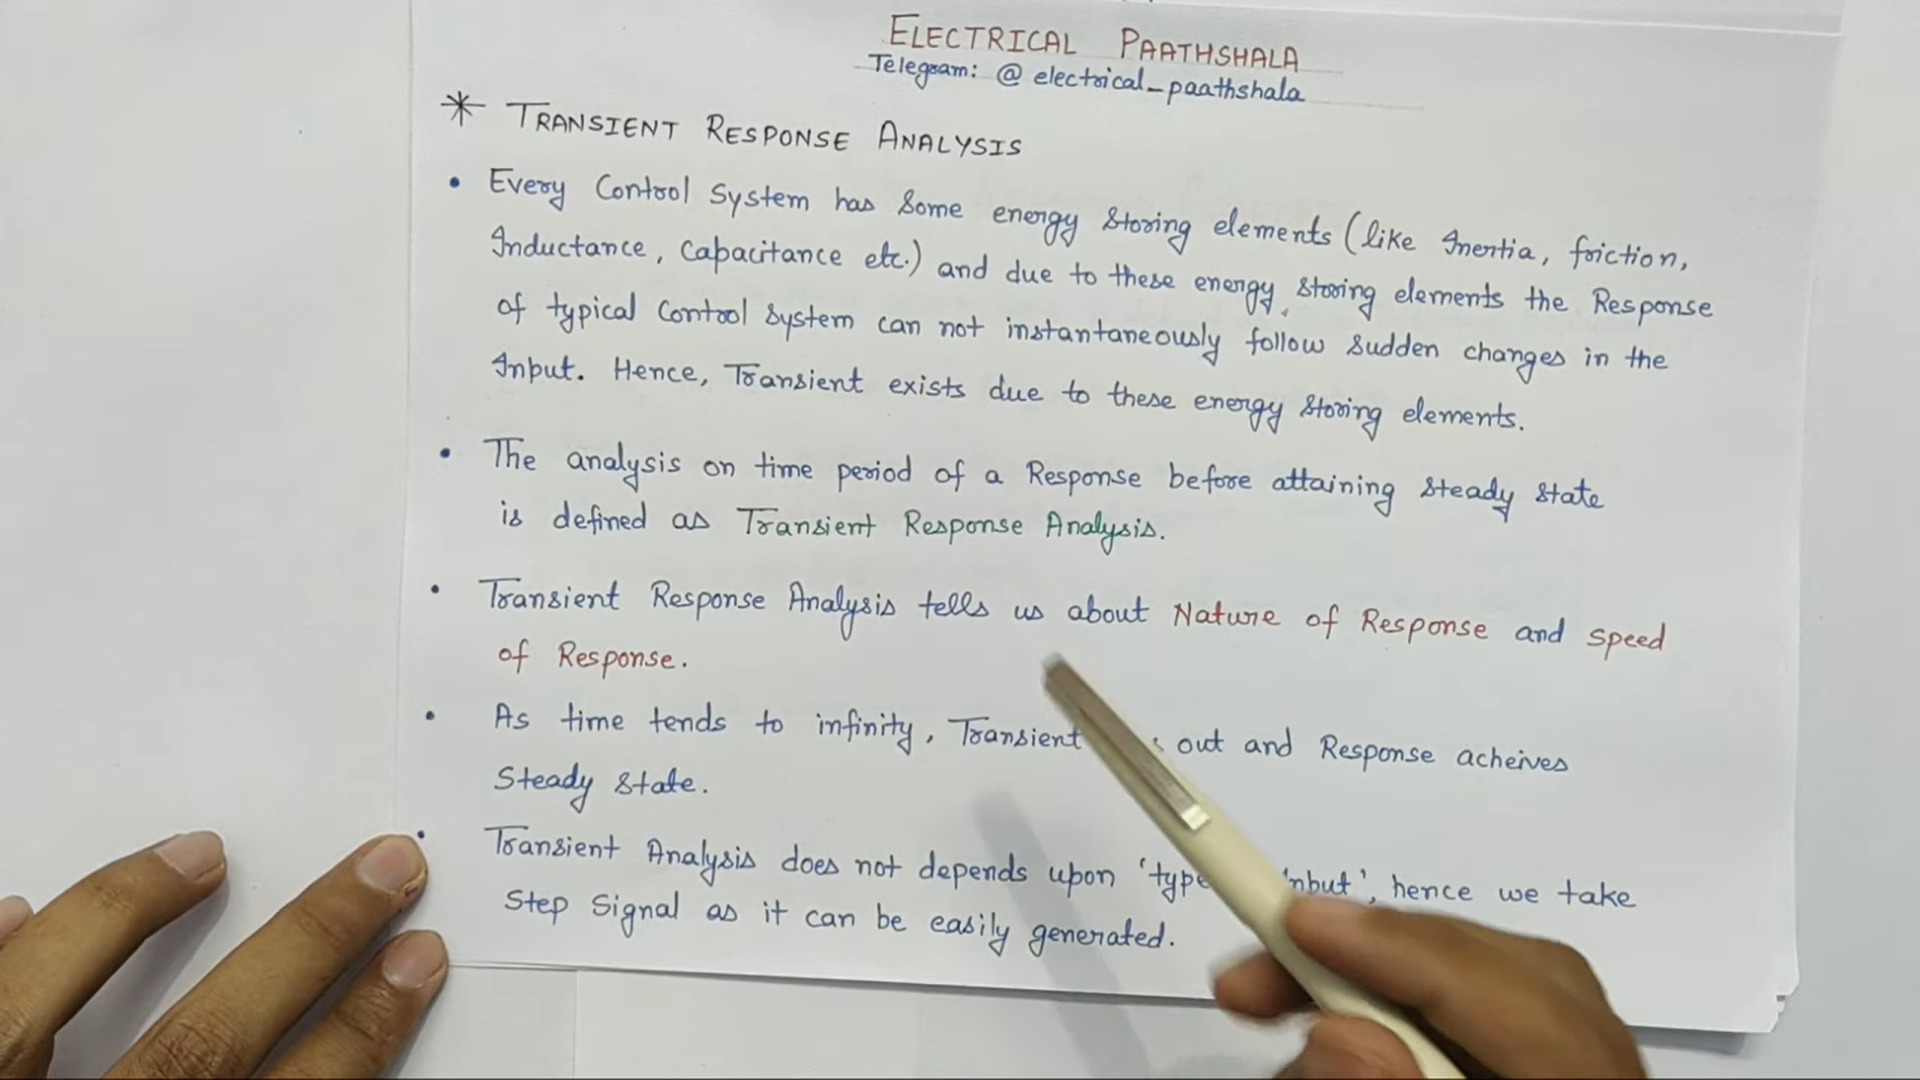 ELECTRICAL PAATHSHALA
Telegram: @ electrical_paathshala
* TRANSIENT RESPONSE ANALYSIS
• Every Control System has Some energy Storing elements (like Inertia, friction,
Inductance, Capacitance etc.) and due to these energy storing elements the Response
of typical Control System can not instantaneously follow Sudden changes in the
Input. Hence, Transient exists due to these energy Storing elements.
• The analysis on time period of a Response before attaining Steady State
is defined as Transient Response Analysis.
• Transient Response Analysis tells us about Nature of Response and Speed
of Response.
• As time tends to infinity, Transient out and Response acheives
Steady State.
• Transient Analysis does not depends upon 'type nput', hence we take
Step Signal as it can be easily generated.